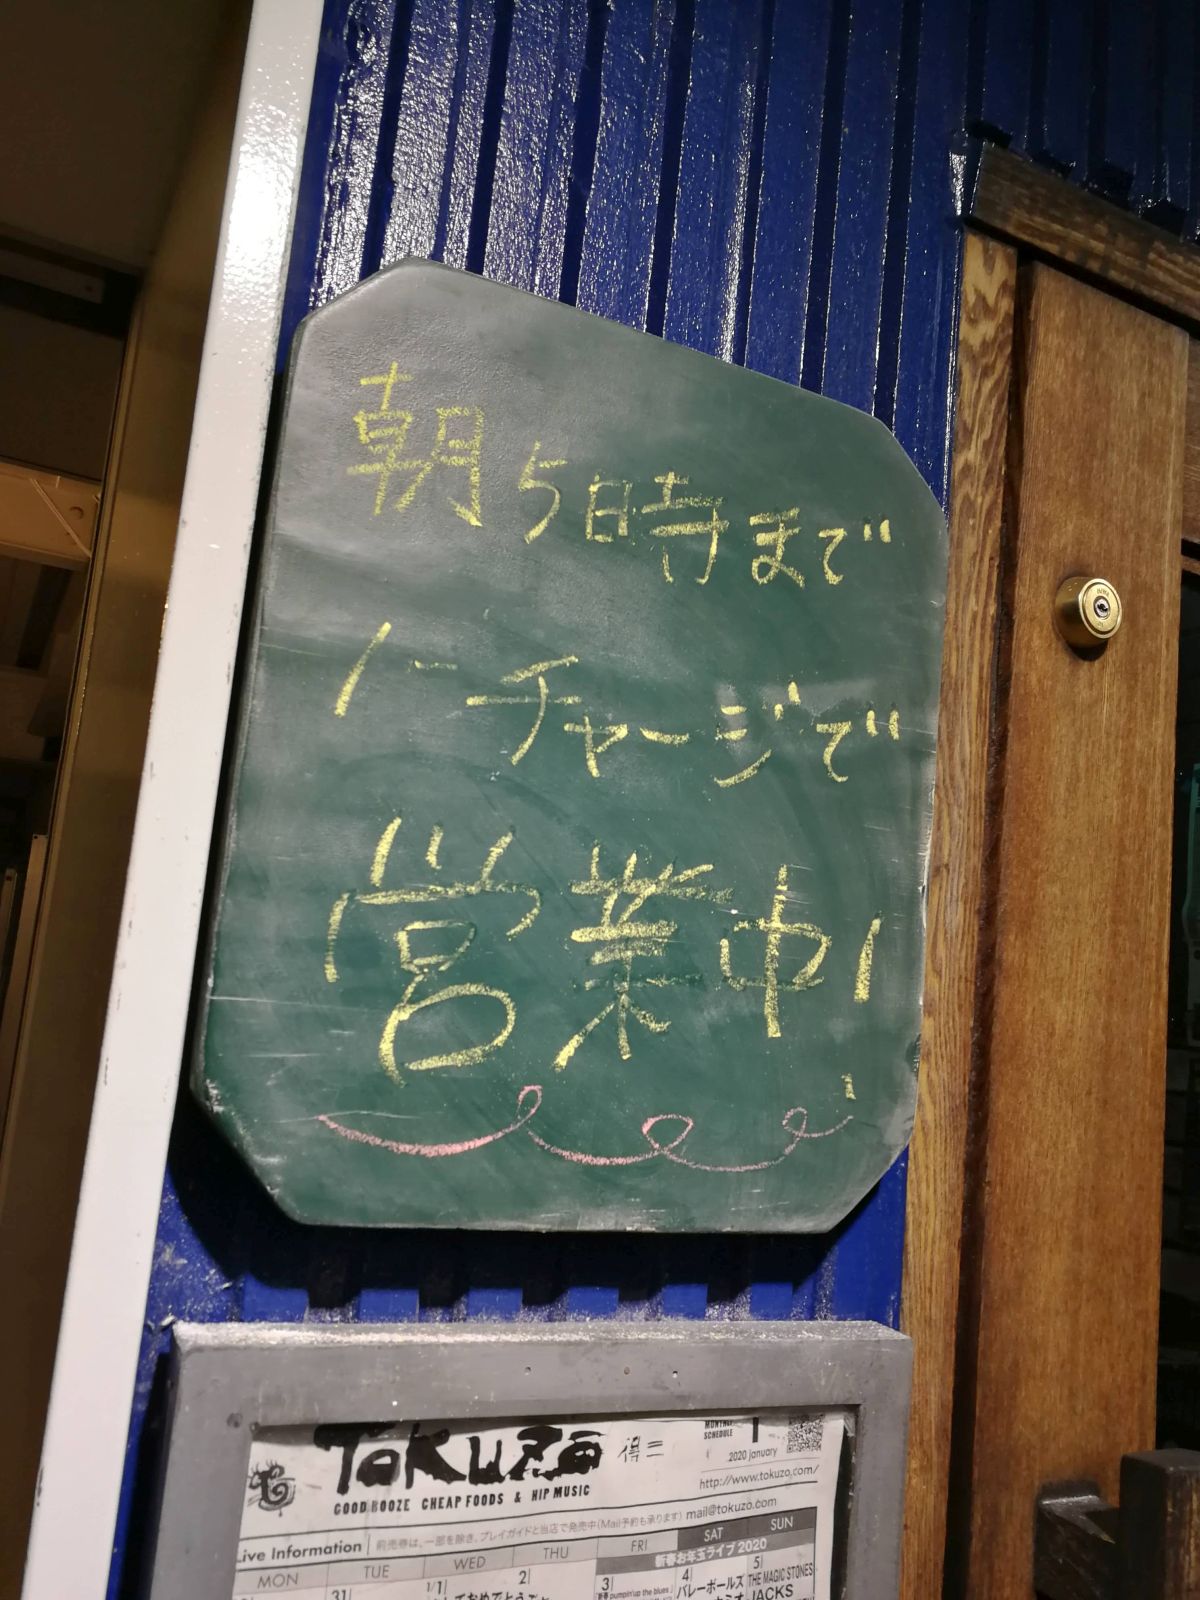 朝5時まで
ノーチャージで
営業中!
ToKuzo 得三
MONTHLY
SCHEDULE
1
2020 January
GOOD BOOZE CHEAP FOODS & HIP MUSIC
http://www.tokuzo.com/
Live Information
前売券は、一部を除き、プレイガイドと当店で発売中(Mail予約も承ります) mail@tokuzo.com
MON TUE WED THU FRI SAT SUN
新春お年玉ライブ2020
31 1/1 2 3 4 5
pumpin'up the blues
バレーボールズ
THE MAGIC STONES
JACKS